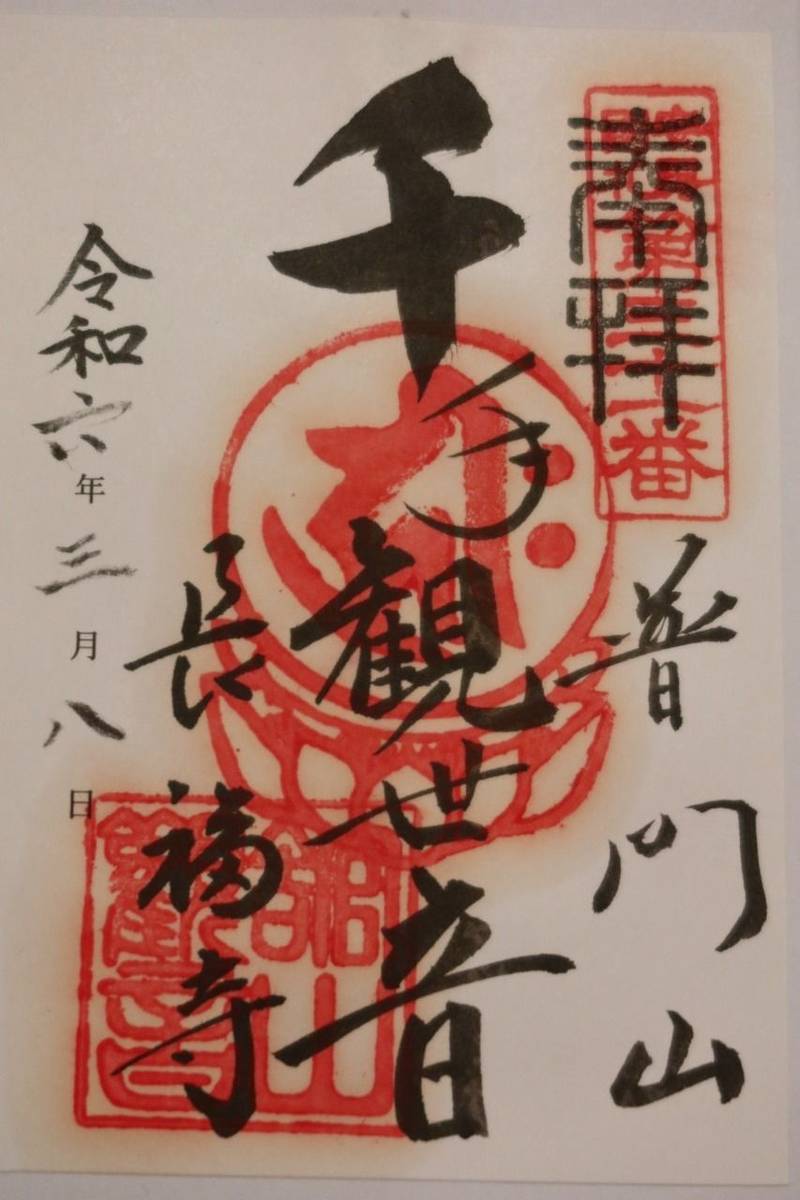 奉拝
普門山
千手観世音
長福寺
令和六年三月八日